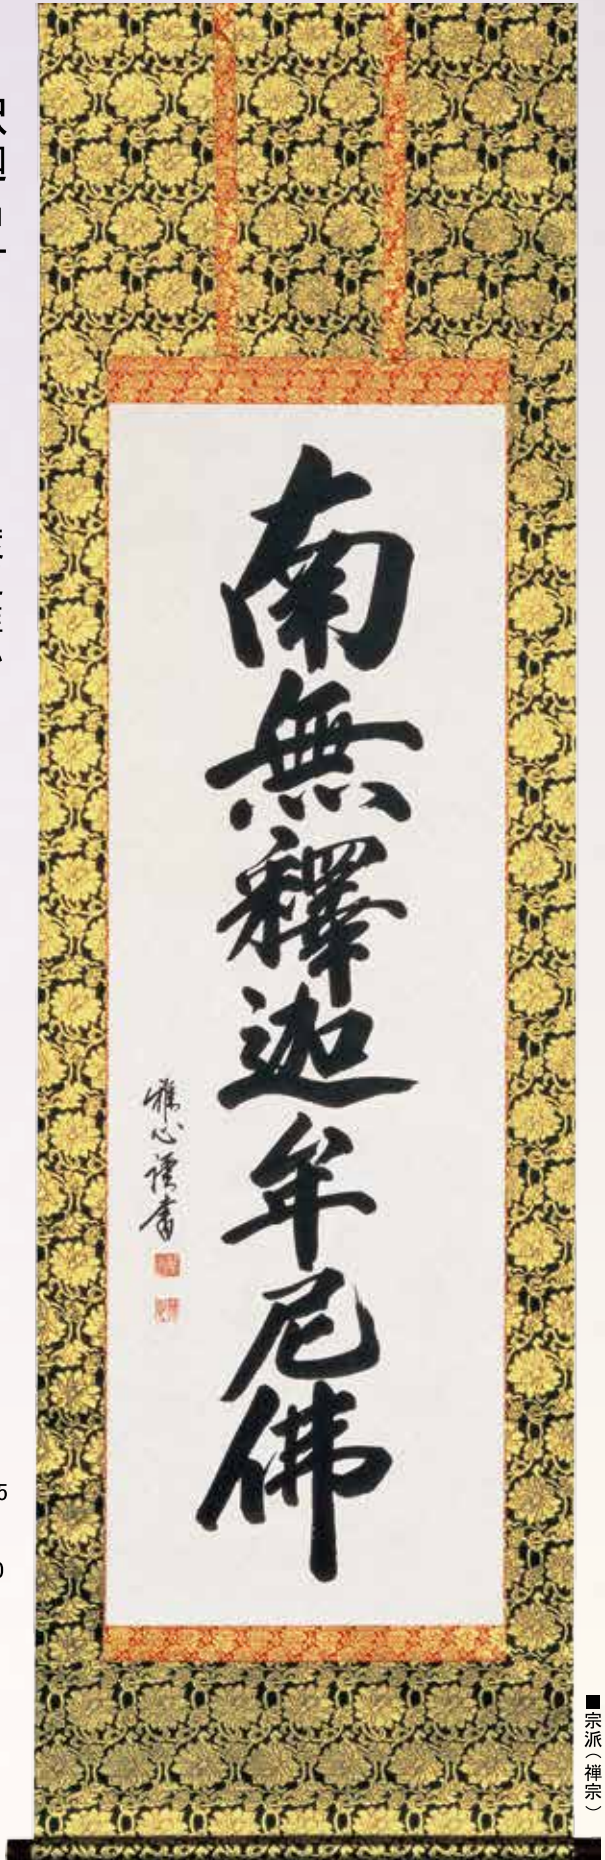 南無釋迦牟尼佛
雅心謹書
■宗派（禅宗）